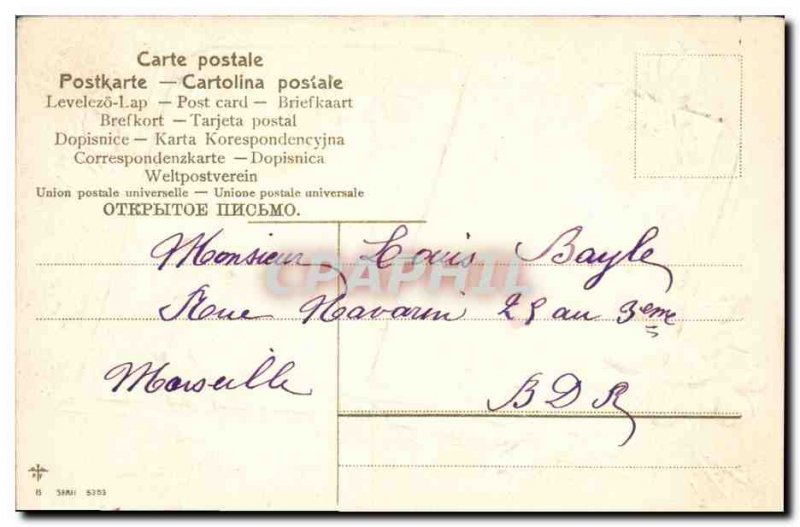 Carte postale
Postkarte — Cartolina postale
Levelező-Lap — Post card — Briefkaart
Brefkort — Tarjeta postal
Dopisnice — Karta Korespondencyjna
Correspondenzkarte — Dopisnica
Weltpostverein
Union postale universelle — Unione postale universale
ОТКРЫТОЕ ПИСЬМО.
Monsieur Louis Bayle
CPAPHIL
Rue Navarin 25 au 3eme
Marseille BDR